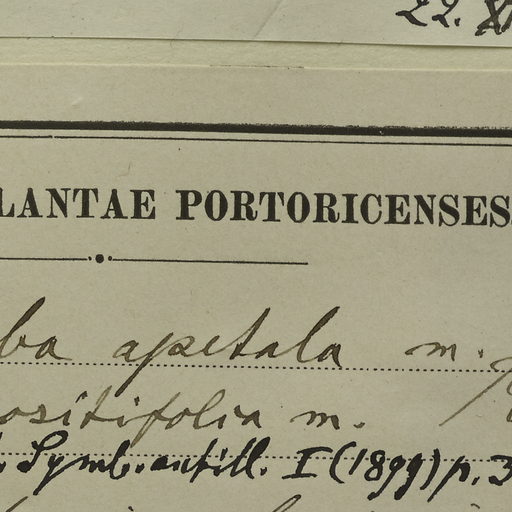 22. XI
LANTAE PORTORICENSES
ba apetala m.
ositifolia m.
Symb. antill. I (1899) p. 3